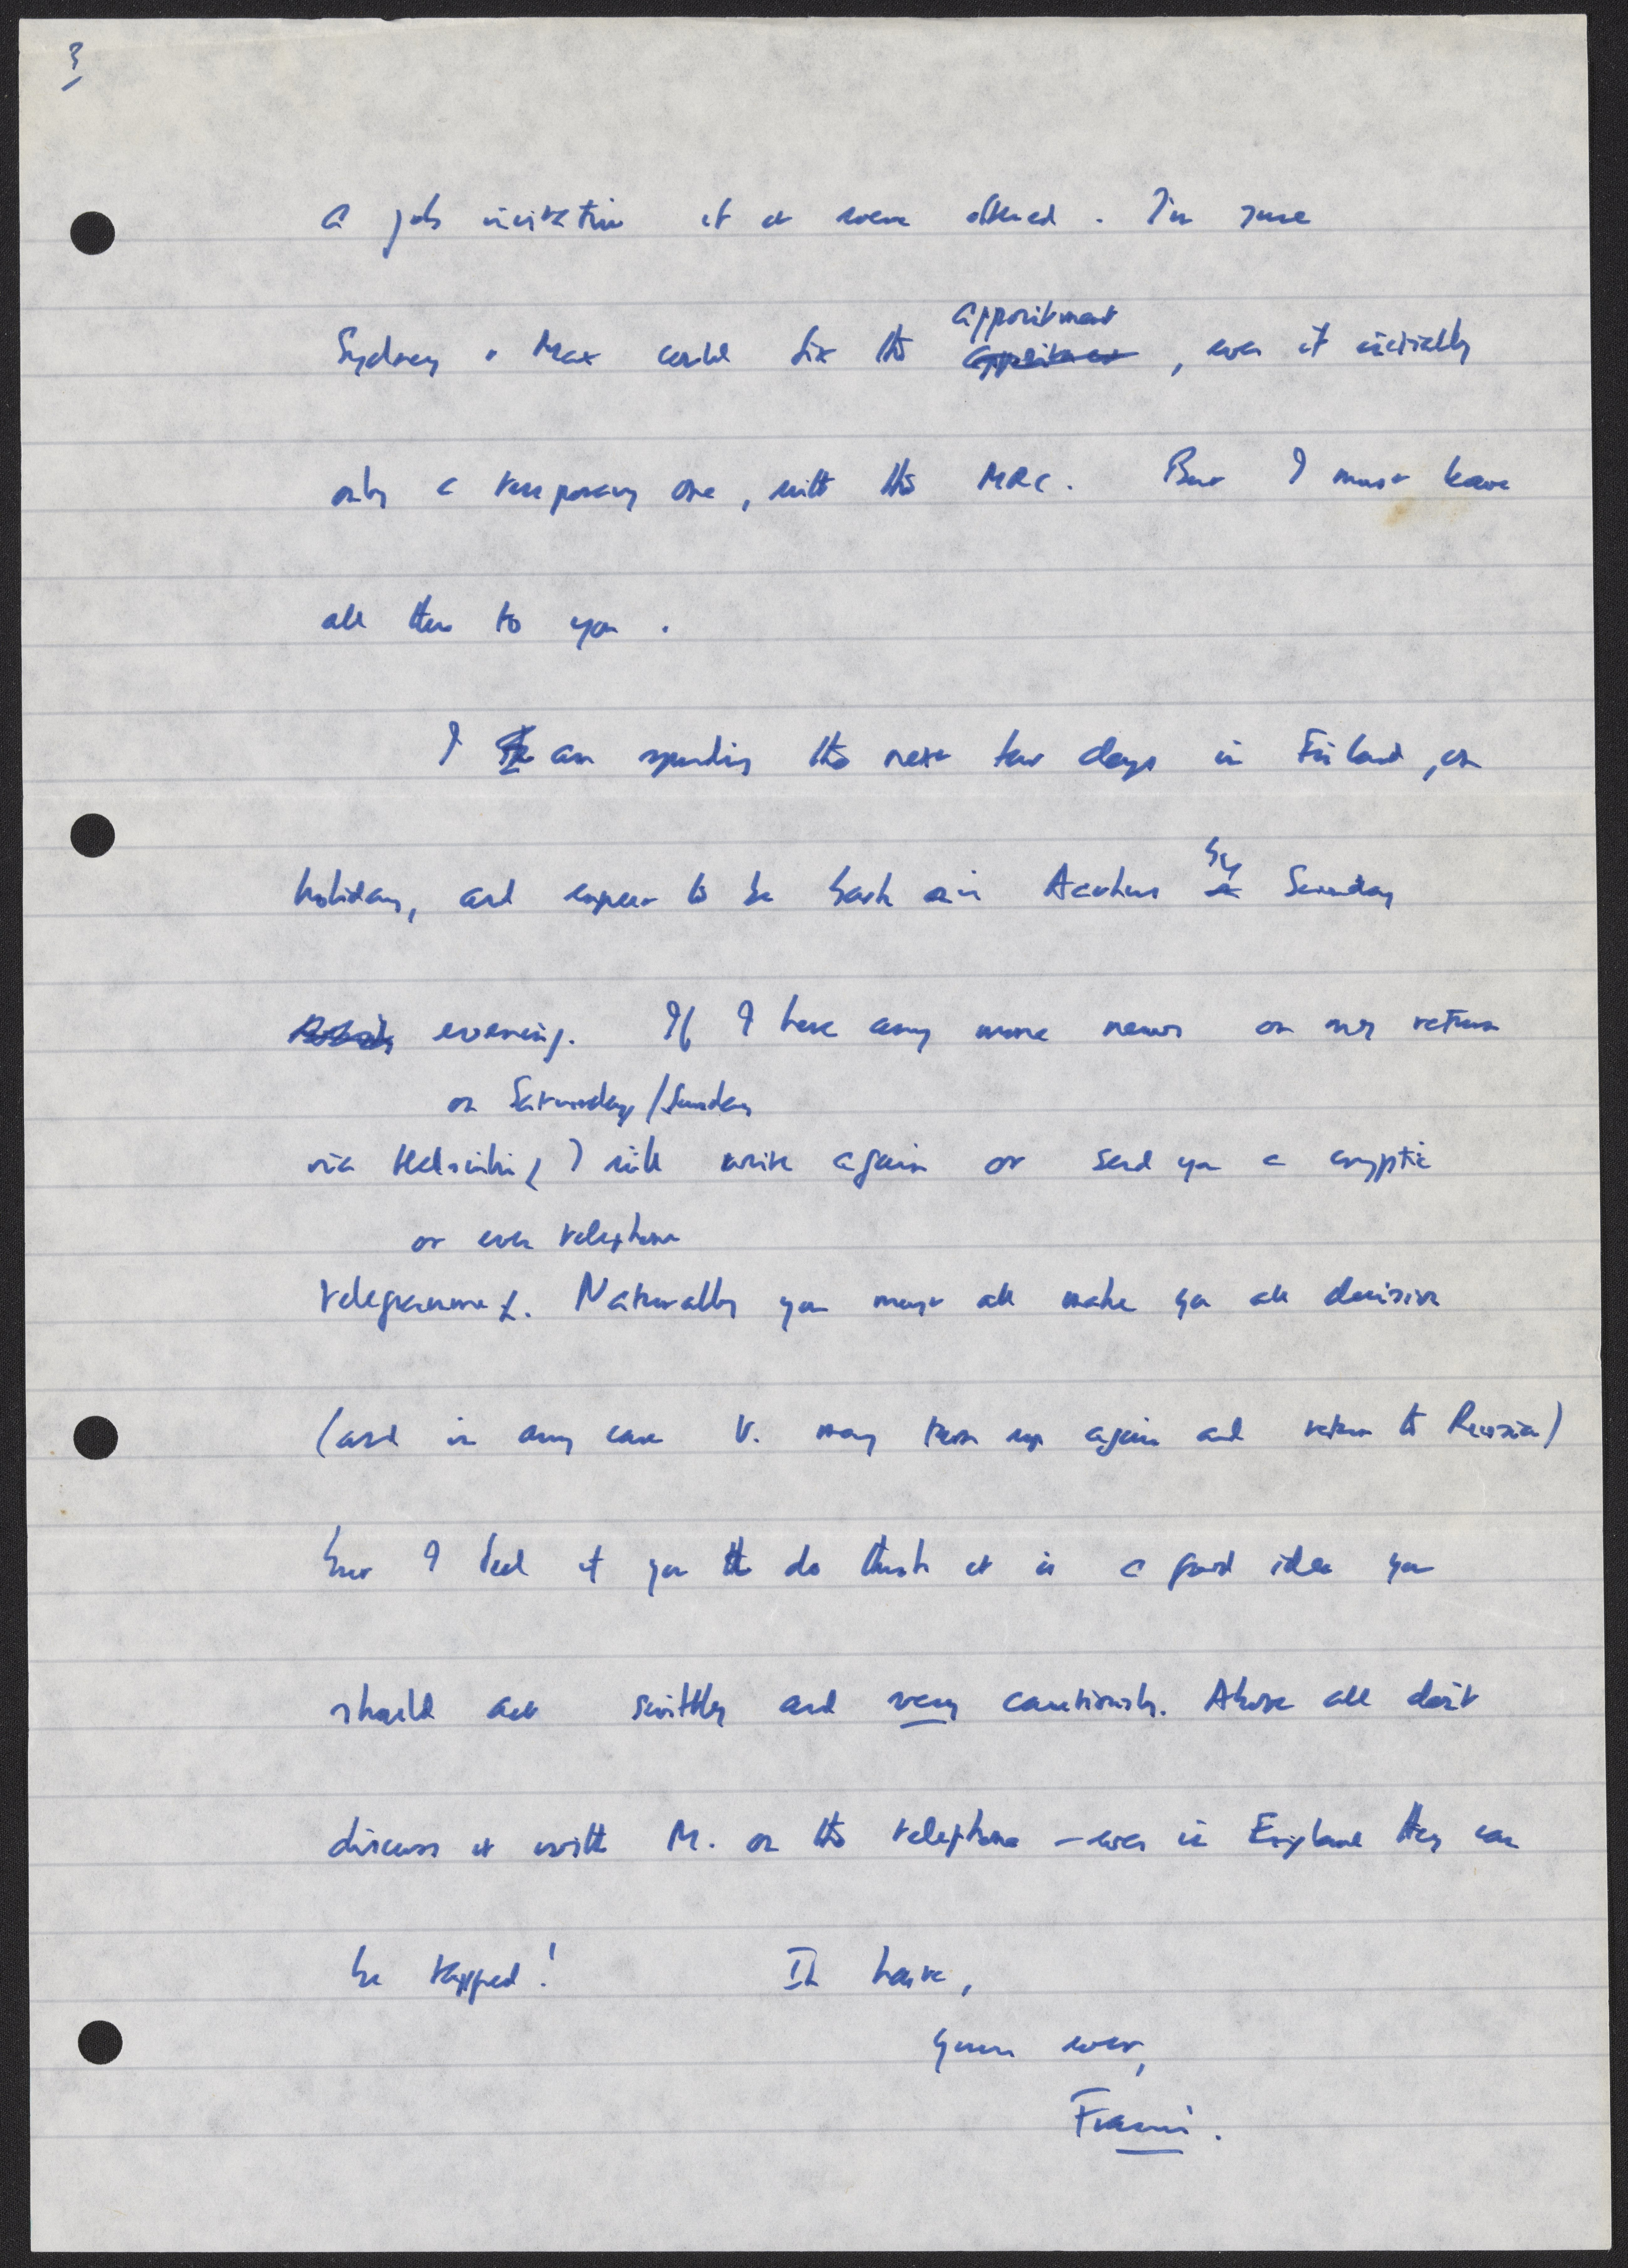 3
a job invitation if it were offered. I'm sure
appointment
Sydney + Max could fix the appointment, even if initially
only a temporary one, with the MRC. But I must leave
all this to you.
I am spending the next few days in Finland, on
by
holiday, and expect to be back in Aarhus Sunday
evening. If I have any more news on my return
on Saturday/Sunday
via Helsinki, I will write again or send you a cryptic
or even telephone
telegramme. Naturally you must all make you all decision
(and in any case V. may turn up again and return to Russia)
but I feel if you do think it is a good idea you
should act swiftly and very cautiously. Above all don't
discuss it with M. on the telephone – even in England they can
be tapped! In haste,
yours ever,
Francis.